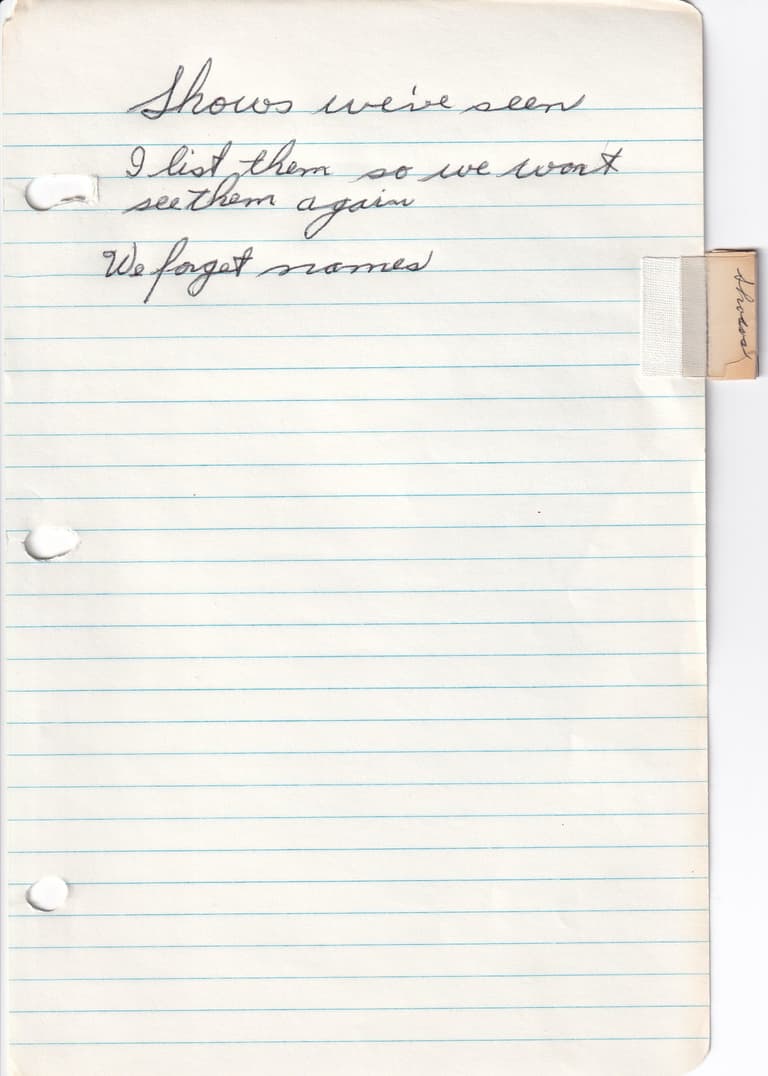 Shows we've seen
I list them so we wont
see them again
We forget names
shows